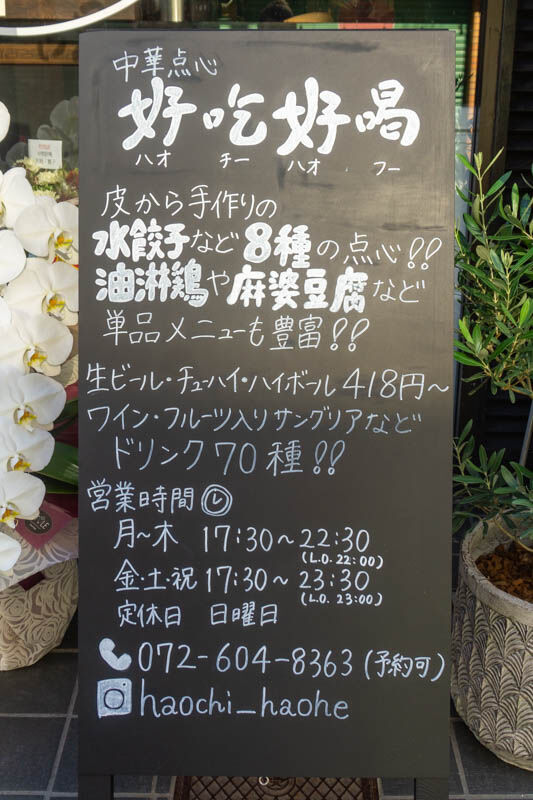 中華点心
好吃好喝
ハオ チー ハオ フー
皮から手作りの
水餃子など8種の点心!!
油淋鶏や麻婆豆腐など
単品メニューも豊富!!
生ビール・チューハイ・ハイボール 418円〜
ワイン・フルーツ入りサングリアなど
ドリンク70種!!
営業時間
月〜木 17:30〜22:30
(L.O.22:00)
金・土・祝 17:30〜23:30
(L.O.23:00)
定休日 日曜日
072-604-8363(予約可)
haochi_haohe